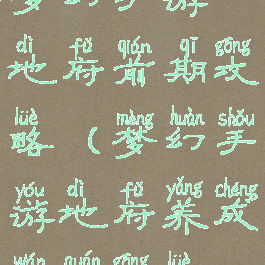 游
dì fǔ qián qī gōng
地府前期攻
lüè mèng huàn shǒu
略（梦幻手
yóu dì fǔ yǎng chéng
游地府养成
wán quán gōng lüè